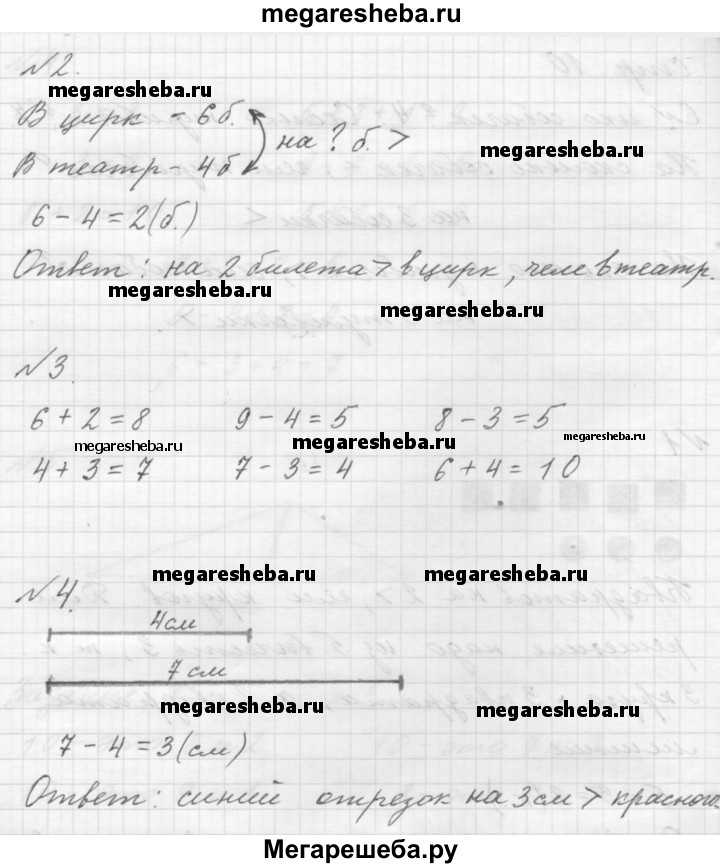 megaresheba.ru
№2.
megaresheba.ru
В цирк - 6б.
на ? б. >
megaresheba.ru
В театр - 4б
6 - 4 = 2(б.)
Ответ: на 2 билета > в цирк, чем в театр.
megaresheba.ru
megaresheba.ru
№3.
6 + 2 = 8 9 - 4 = 5 8 - 3 = 5
megaresheba.ru megaresheba.ru megaresheba.ru
4 + 3 = 7 7 - 3 = 4 6 + 4 = 10
megaresheba.ru megaresheba.ru
№4.
4см
7 см
megaresheba.ru megaresheba.ru
7 - 4 = 3(см)
Ответ: синий отрезок на 3см > красного.
Мегарешеба.ру